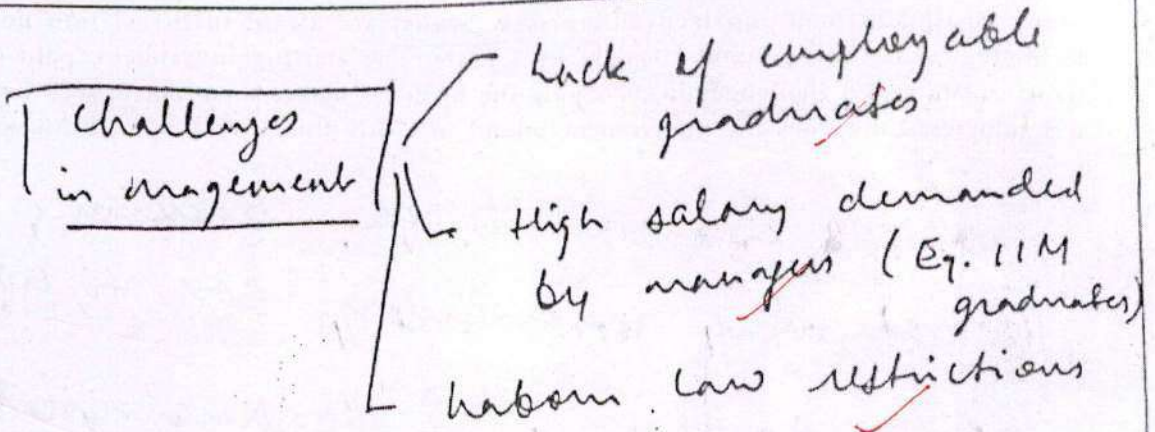 Challenges
in mnagement
Lack of employable
graduates
High salary demanded
by managers (Eg. IIM
graduates)
Labour law restrictions